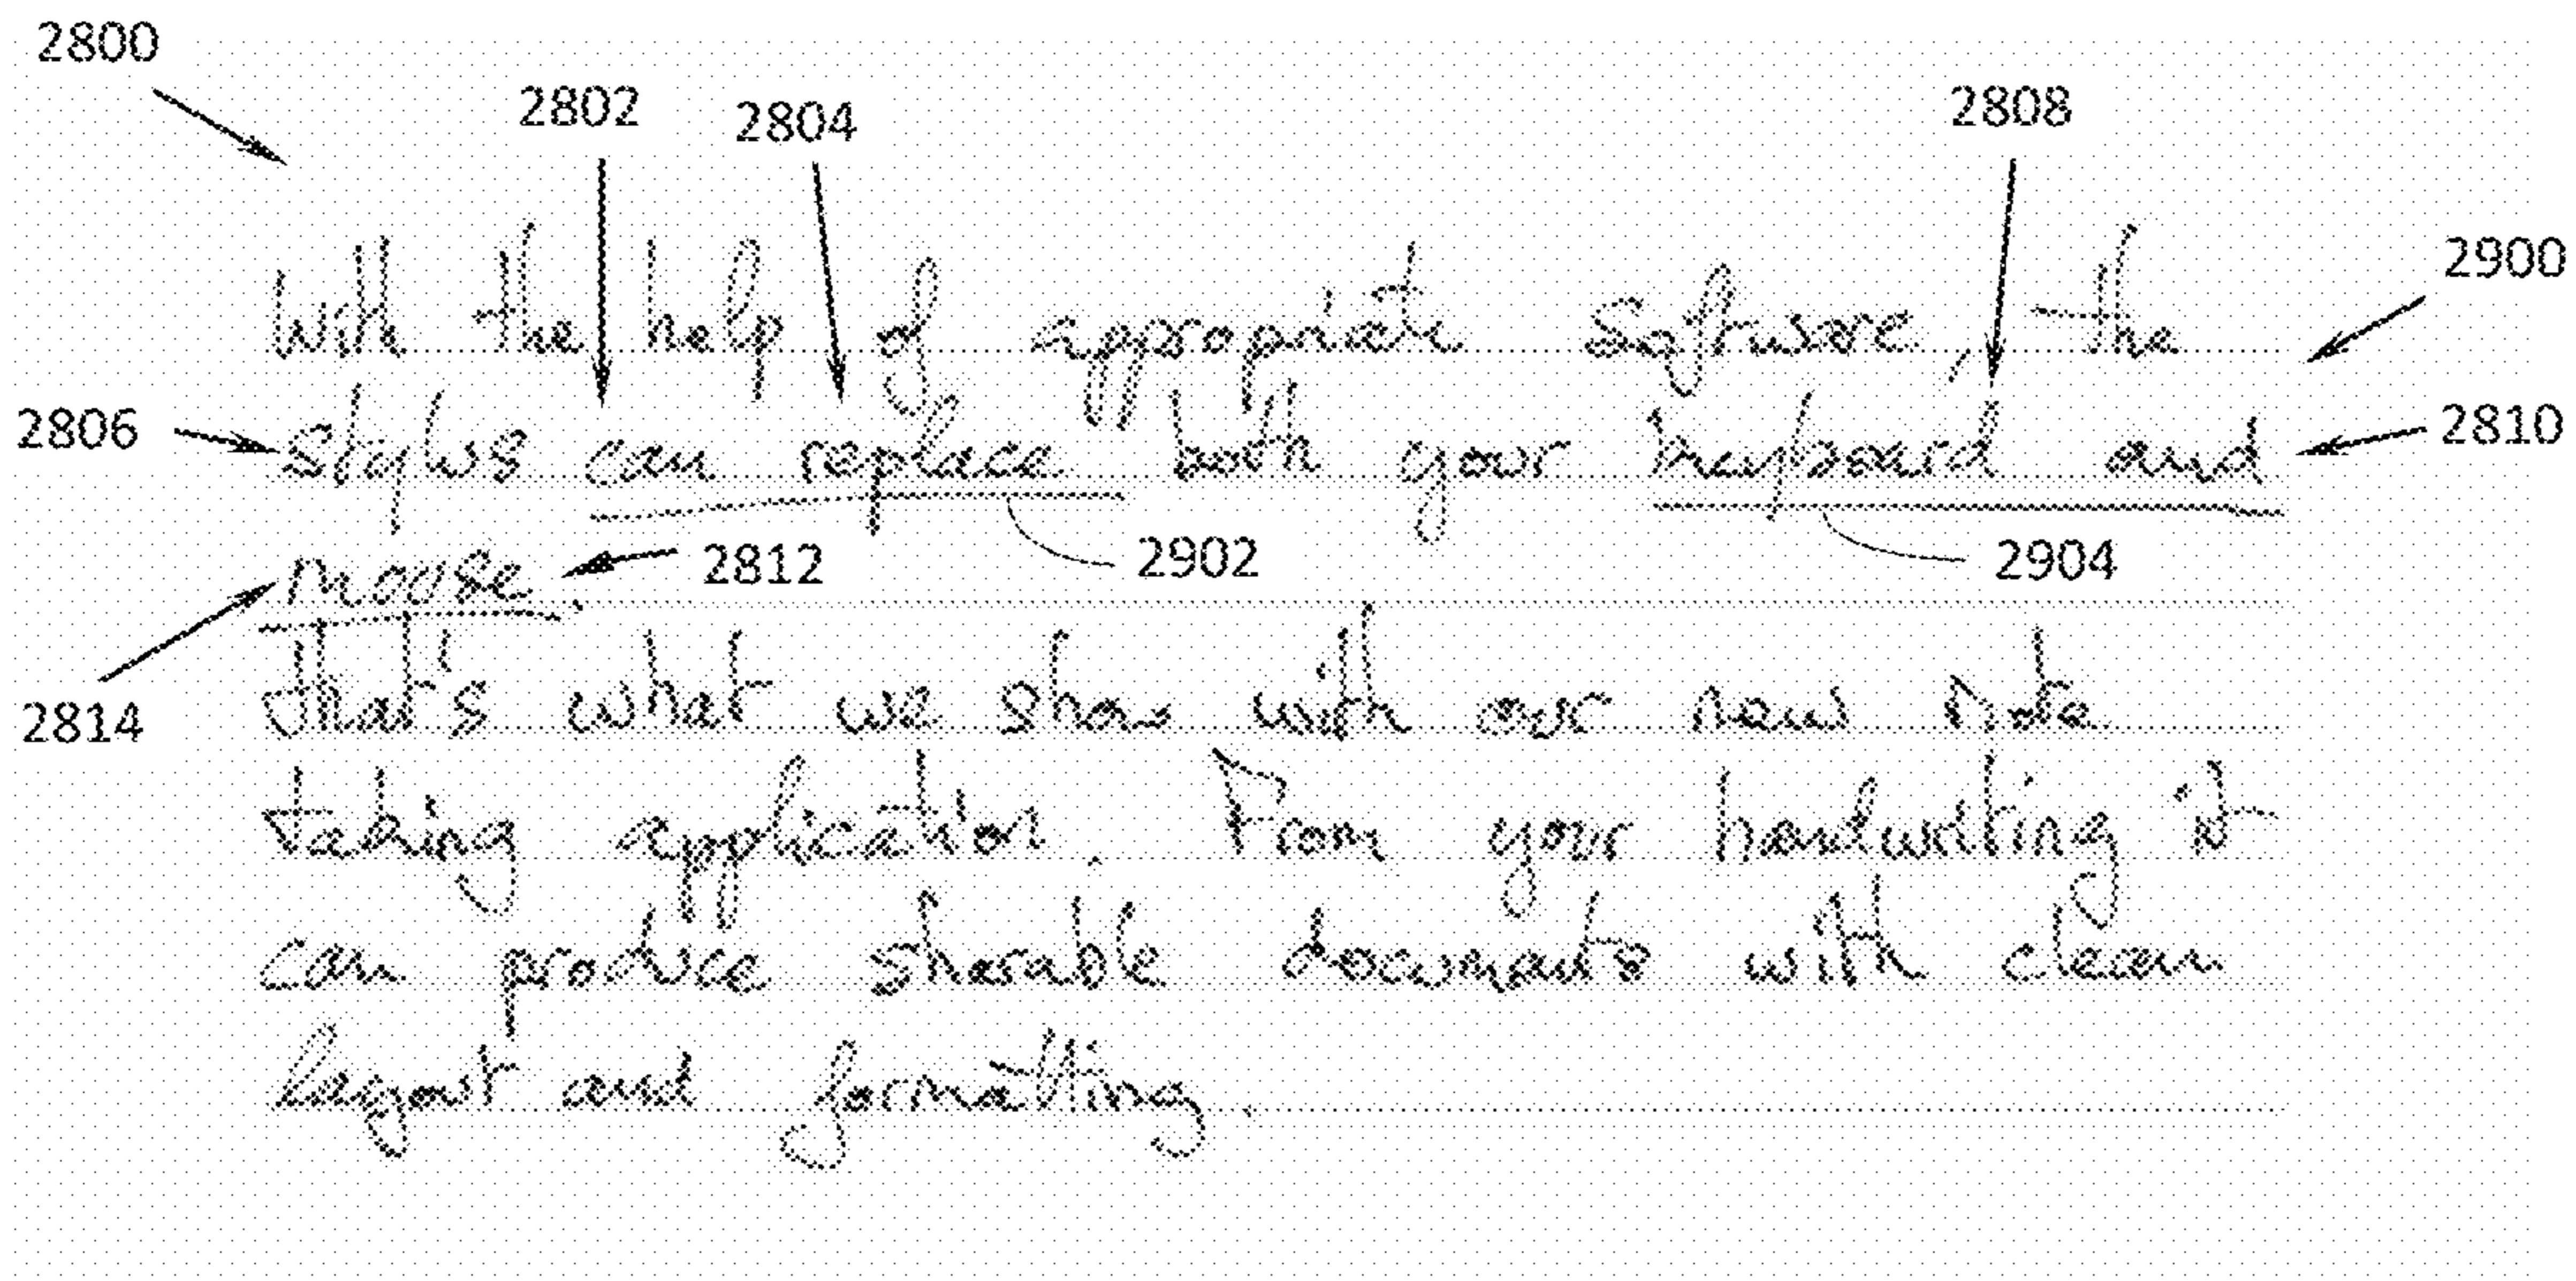 2800
2802
2804
2808
With the help of appropriate Software, the
2900
2806
stylus can replace both your keyboard and
2810
mouse.
2812
2902
2904
2814
That's what we show with our new Note
taking application. From your handwriting it
can produce sharable documents with clean
layout and formatting.